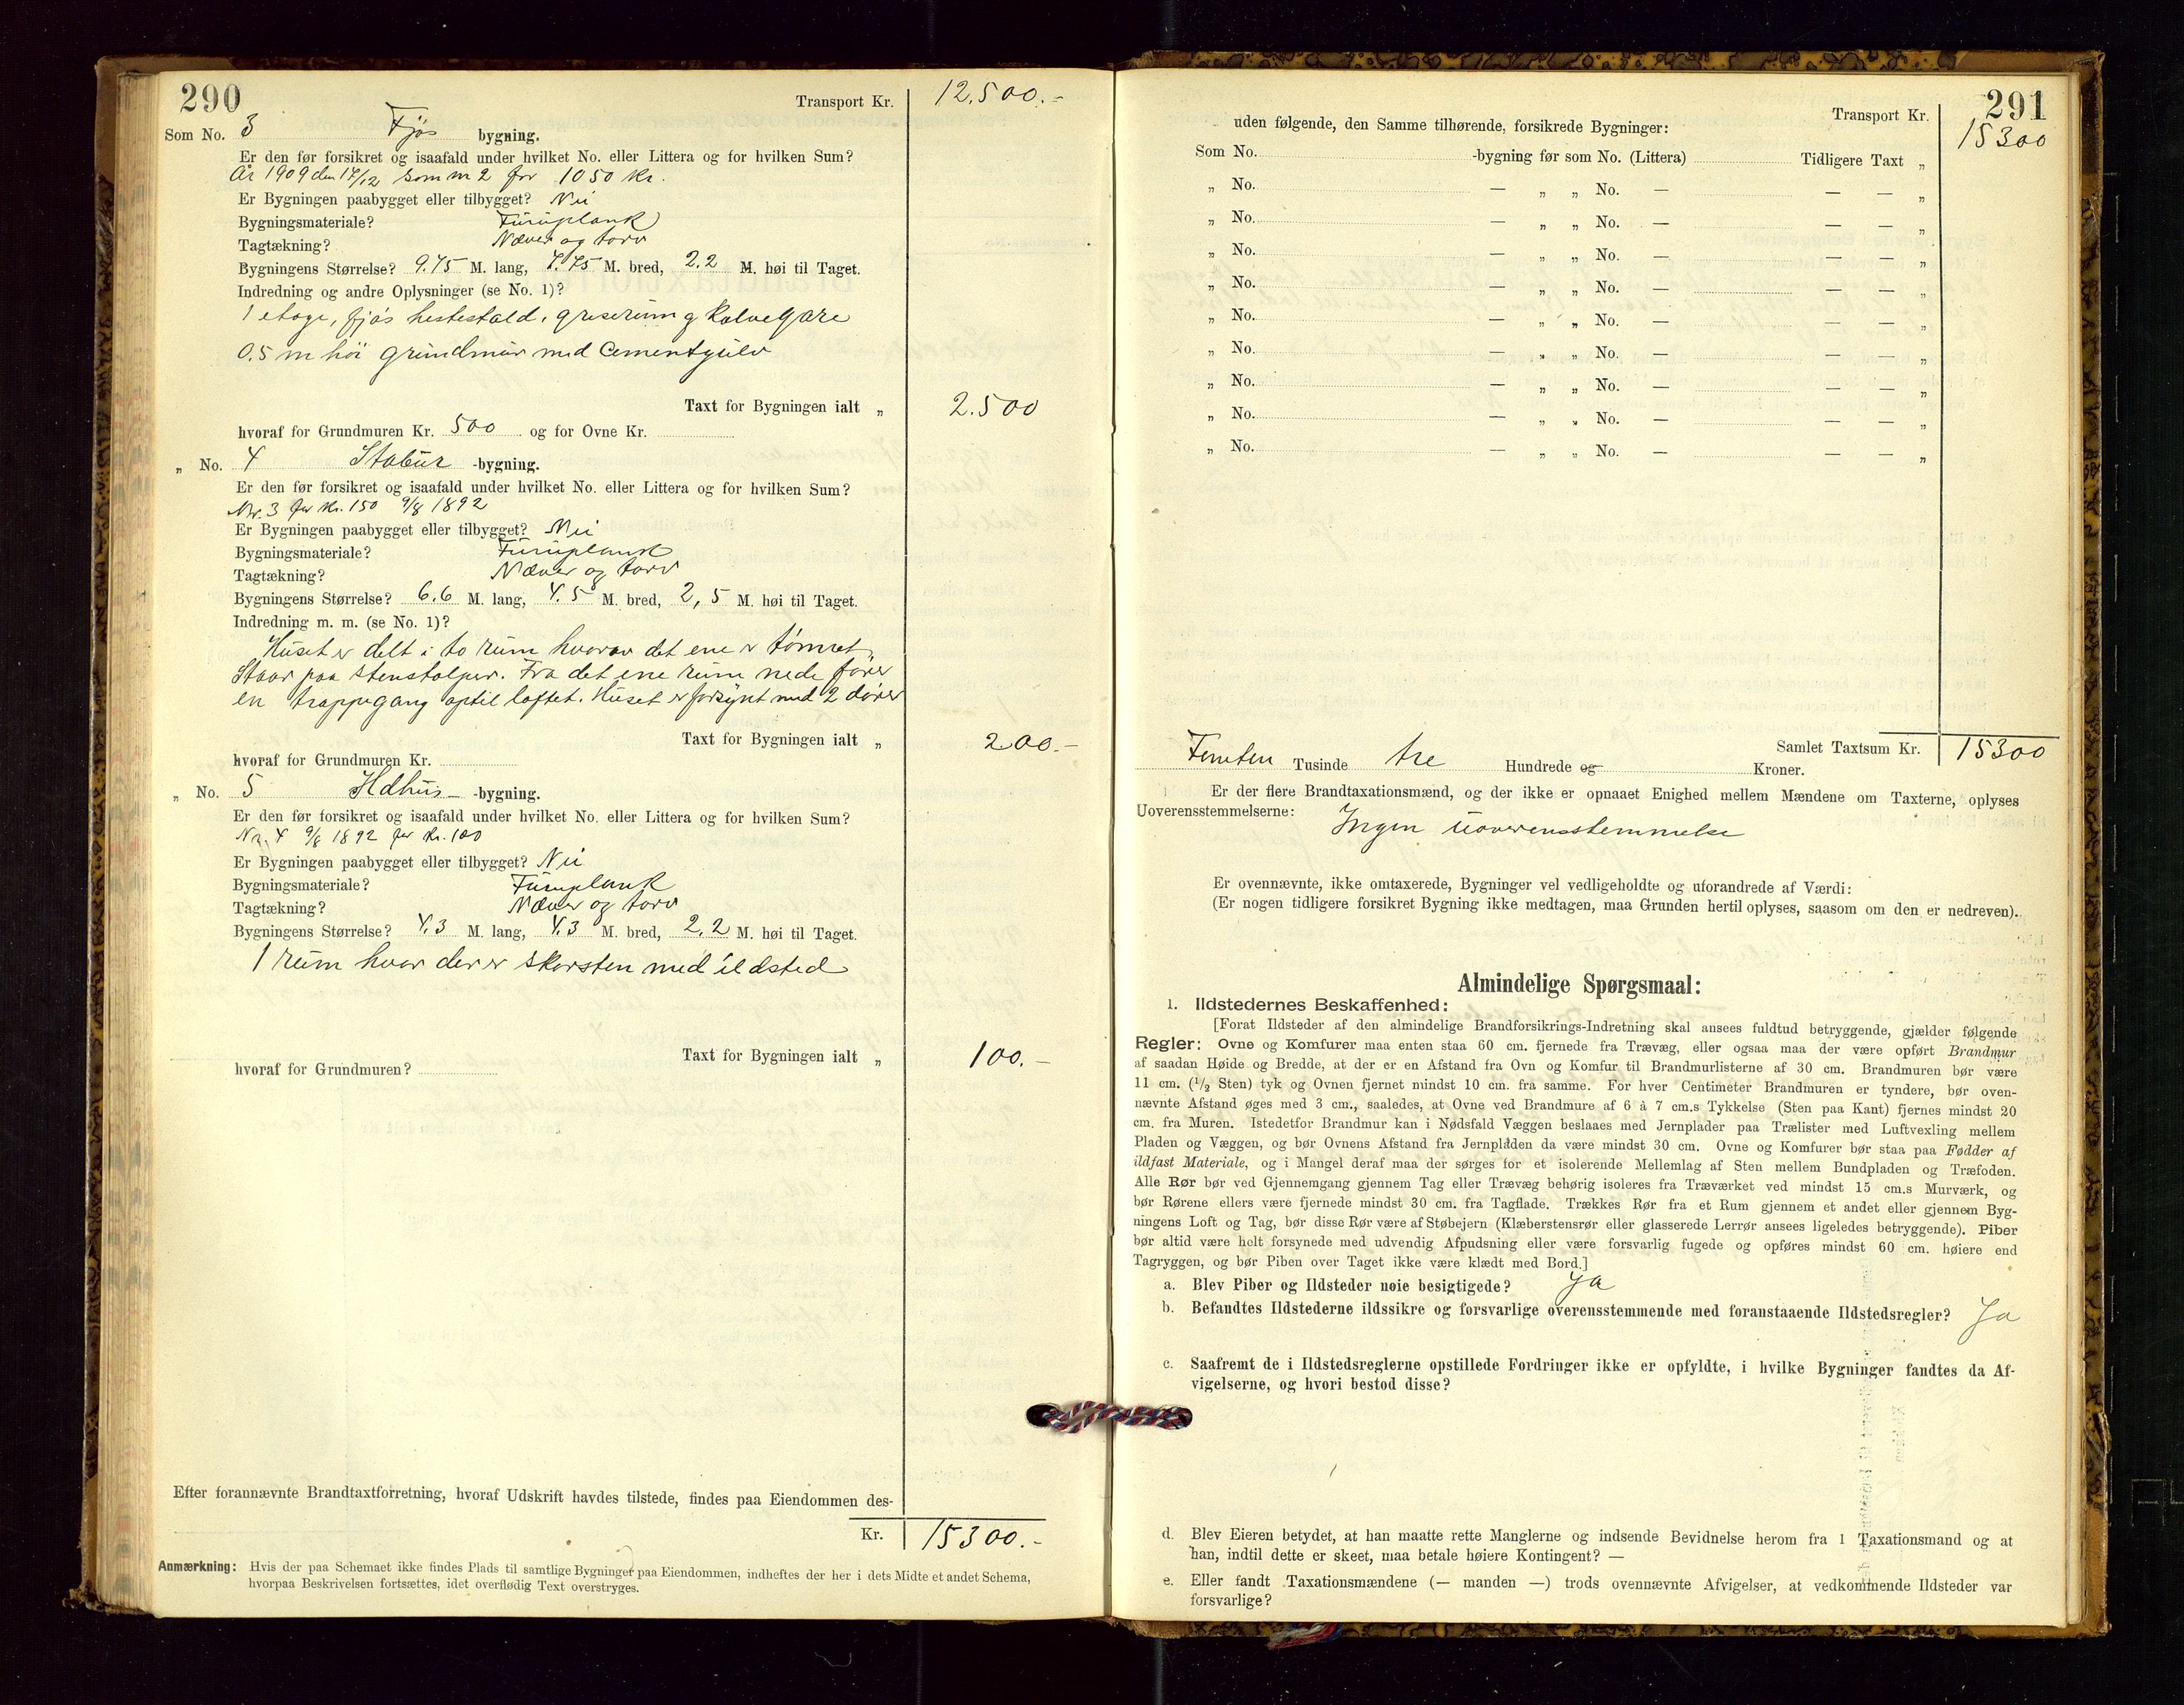 290
Transport Kr. 12.500.-
Som No. 3 Fjøs bygning.
Er den før forsikret og isaafald under hvilket No. eller Littera og for hvilken Sum?
År 1909 den 17/12 som nr 2 for 1050 kr.
Er Bygningen paabygget eller tilbygget? Nei
Bygningsmateriale? Furuplank
Tagtækning? Næver og torv
Bygningens Størrelse? 9.75 M. lang, 7.75 M. bred, 2.2 M. høi til Taget.
Indredning og andre Oplysninger (se No. 1)?
1 etage, fjøs hestestald, griserum og kalvegare
0.5 m høi grundmur med Cementgulv
Taxt for Bygningen ialt „ 2.500
hvoraf for Grundmuren Kr. 500 og for Ovne Kr.
„ No. 4 Stabur -bygning.
Er den før forsikret og isaafald under hvilket No. eller Littera og for hvilken Sum?
Nr. 3 for kr. 150 9/8 1892
Er Bygningen paabygget eller tilbygget? Nei
Bygningsmateriale? Furuplank
Tagtækning? Næver og torv
Bygningens Størrelse? 6.6 M. lang, 4.5 M. bred, 2,5 M. høi til Taget.
Indredning m. m. (se No. 1)?
Huset er delt i to rum hvorav det ene er tømret,
Staar paa stenstolper. Fra det ene rum nede fører
en trappegang optil loftet. Huset er forsynt med 2 dører
Taxt for Bygningen ialt „ 200.-
hvoraf for Grundmuren Kr.
„ No. 5 Ildhus -bygning.
Er den før forsikret og isaafald under hvilket No. eller Littera og for hvilken Sum?
Nr. 4 9/8 1892 for kr. 100
Er Bygningen paabygget eller tilbygget? Nei
Bygningsmateriale? Furuplank
Tagtækning? Næver og torv
Bygningens Størrelse? 4.3 M. lang, 4.3 M. bred, 2.2 M. høi til Taget.
1 rum hvor der er skorsten med ildsted
Taxt for Bygningen ialt „ 100.-
hvoraf for Grundmuren?
Efter forannævnte Brandtaxtforretning, hvoraf Udskrift havdes tilstede, findes paa Eiendommen des-
Kr. 15300.-
Anmærkning: Hvis der paa Schemaet ikke findes Plads til samtlige Bygninger paa Eiendommen, indheftes der her i dets Midte et andet Schema,
hvorpaa Beskrivelsen fortsættes, idet overflødig Text overstryges.
291
Transport Kr. 15300
uden følgende, den Samme tilhørende, forsikrede Bygninger:
Som No. -bygning før som No. (Littera) Tidligere Taxt „
„ No. — „ „ No. — — — „
„ No. — „ „ No. — — — „
„ No. — „ „ No. — — — „
„ No. — „ „ No. — — — „
„ No. — „ „ No. — — — „
„ No. — „ „ No. — — — „
„ No. — „ „ No. — — — „
„ No. — „ „ No. — — — „
„ No. — „ „ No. — — — „
Samlet Taxtsum Kr. 15300
Femten Tusinde tre Hundrede og Kroner.
Er der flere Brandtaxationsmænd, og der ikke er opnaaet Enighed mellem Mændene om Taxterne, oplyses
Uoverensstemmelserne: Ingen uoverensstemmelse
Er ovennævnte, ikke omtaxerede, Bygninger vel vedligeholdte og uforandrede af Værdi:
(Er nogen tidligere forsikret Bygning ikke medtagen, maa Grunden hertil oplyses, saasom om den er nedreven).
Almindelige Spørgsmaal:
1. Ildstedernes Beskaffenhed:
[Forat Ildsteder af den almindelige Brandforsikrings-Indretning skal ansees fuldtud betryggende, gjælder følgende
Regler: Ovne og Komfurer maa enten staa 60 cm. fjernede fra Trævæg, eller ogsaa maa der være opført Brandmur
af saadan Høide og Bredde, at der er en Afstand fra Ovn og Komfur til Brandmurlisterne af 30 cm. Brandmuren bør være
11 cm. (1/2 Sten) tyk og Ovnen fjernet mindst 10 cm. fra samme. For hver Centimeter Brandmuren er tyndere, bør oven-
nævnte Afstand øges med 3 cm., saaledes, at Ovne ved Brandmure af 6 à 7 cm.s Tykkelse (Sten paa Kant) fjernes mindst 20
cm. fra Muren. Istedetfor Brandmur kan i Nødsfald Væggen beslaaes med Jernplader paa Trælister med Luftvexling mellem
Pladen og Væggen, og bør Ovnens Afstand fra Jernpladen da være mindst 30 cm. Ovne og Komfurer bør staa paa Fødder af
ildfast Materiale, og i Mangel deraf maa der sørges for et isolerende Mellemlag af Sten mellem Bundpladen og Træfoden.
Alle Rør bør ved Gjennemgang gjennem Tag eller Trævæg behørig isoleres fra Træværket ved mindst 15 cm.s Murværk, og
bør Rørene ellers være fjernede mindst 30 cm. fra Tagflade. Trækkes Rør fra et Rum gjennem et andet eller gjennem Byg-
ningens Loft og Tag, bør disse Rør være af Støbejern (Klæberstensrør eller glasserede Lerrør ansees ligeledes betryggende). Piber
bør altid være helt forsynede med udvendig Afpudsning eller være forsvarlig fugede og opføres mindst 60 cm. høiere end
Tagryggen, og bør Piben over Taget ikke være klædt med Bord.]
a. Blev Piber og Ildsteder nøie besigtigede? Ja
b. Befandtes Ildstederne ildssikre og forsvarlige overensstemmende med foranstaaende Ildstedsregler? Ja
c. Saafremt de i Ildstedsreglerne opstillede Fordringer ikke er opfyldte, i hvilke Bygninger fandtes da Af-
vigelserne, og hvori bestod disse?
d. Blev Eieren betydet, at han maatte rette Manglerne og indsende Bevidnelse herom fra 1 Taxationsmand og at
han, indtil dette er skeet, maa betale høiere Kontingent? —
e. Eller fandt Taxationsmændene (— manden —) trods ovennævnte Afvigelser, at vedkommende Ildsteder var
forsvarlige?